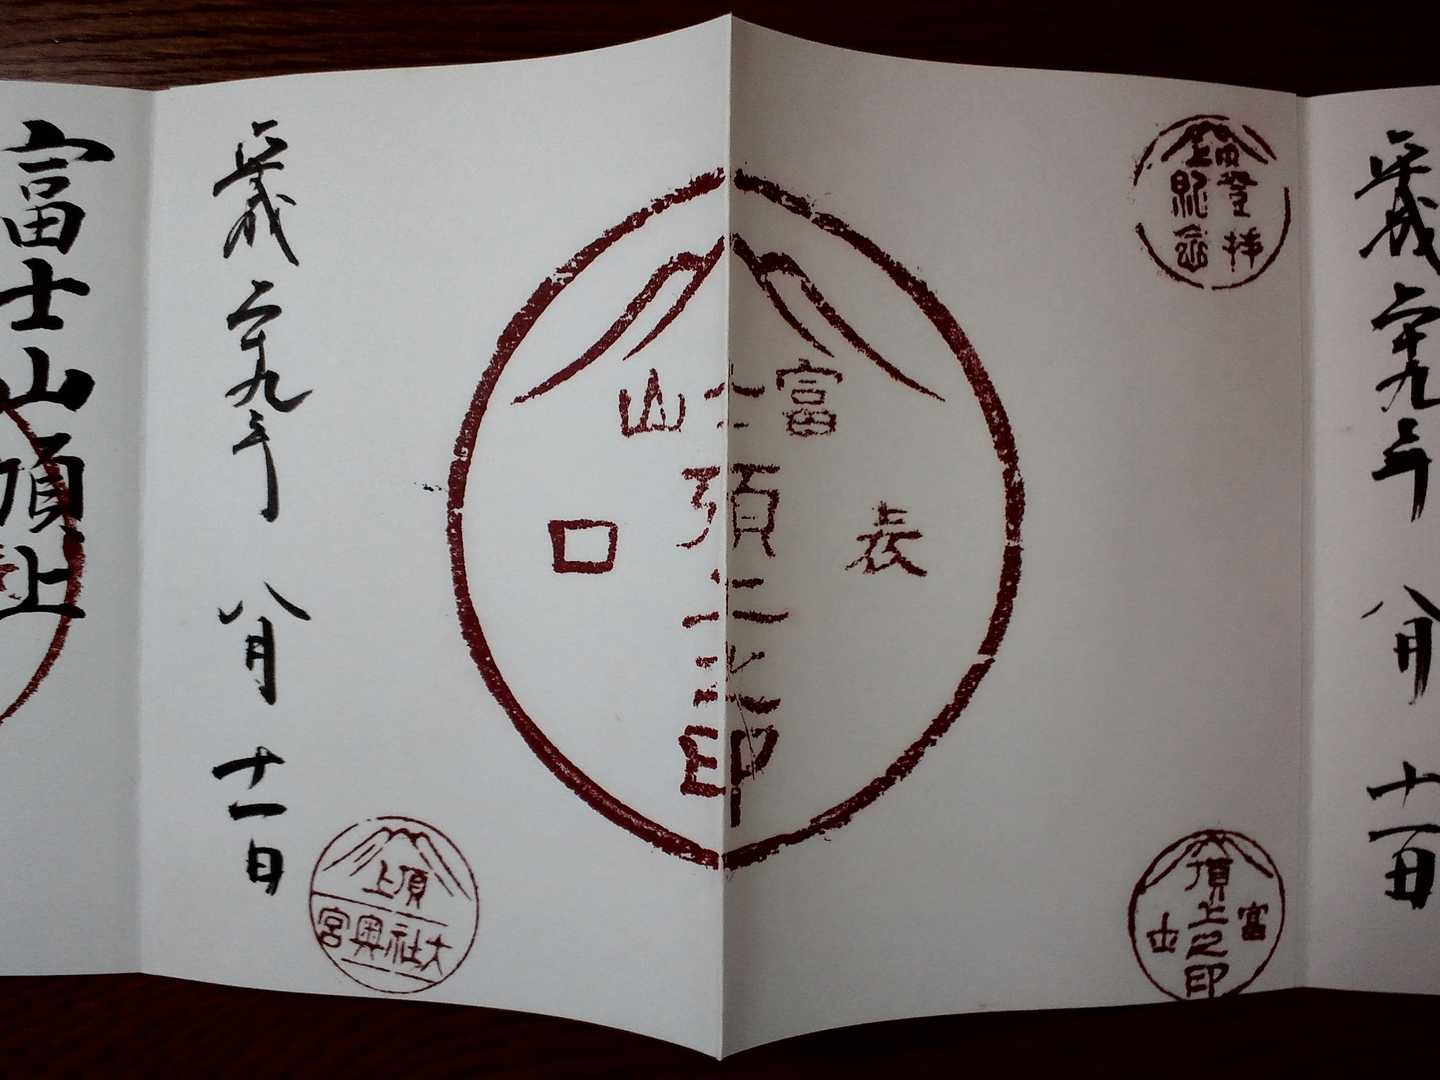 富士山頂上
平成二十九年 八月 十一日
富士山
頂上之印
表
口
頂上
大社奥宮
登拝
紀念
頂上之印
富
士
山
平成二十九年 八月 十一日